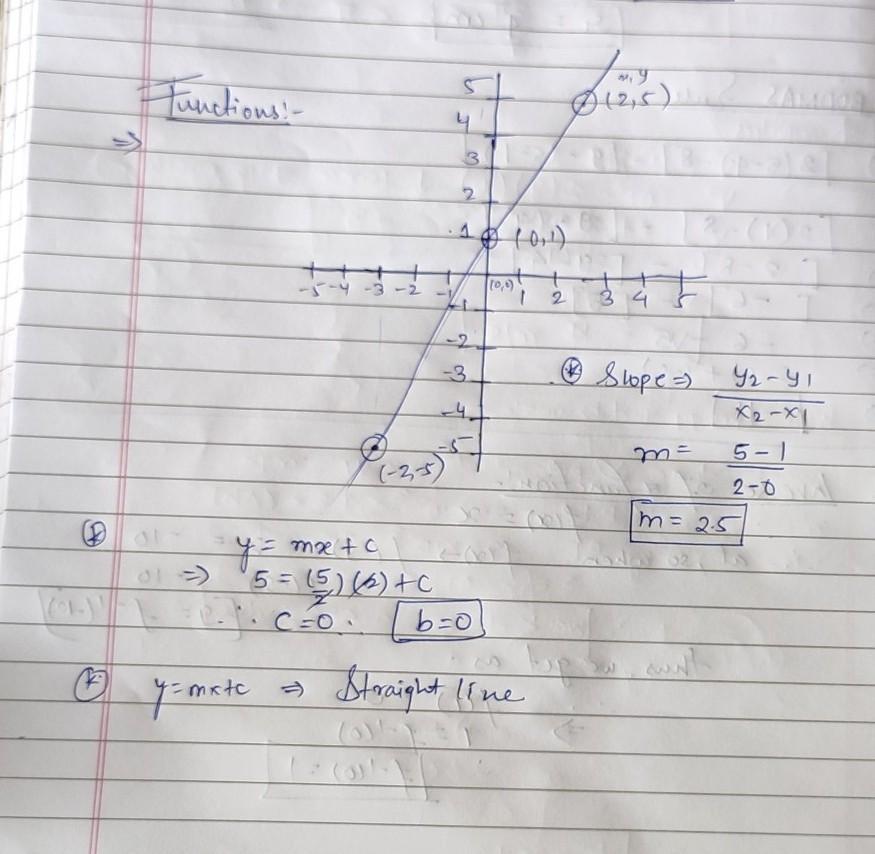 Functions:-
⇒
5
4
3
2
1
x, y
(2,5)
(0,1)
-5 -4 -3 -2 -1 (0,0) 1 2 3 4 5
-1
-2
-3
-4
-5
(-2,-5)
⊛ Slope ⇒ y2 - y1 / x2 - x1
m = 5 - 1 / 2 - 0
m = 2.5
⊛ y = mx + c
⇒ 5 = (5/2)(2) + c
∴ c = 0. b = 0
⊛ y = mx + c ⇒ Straight line